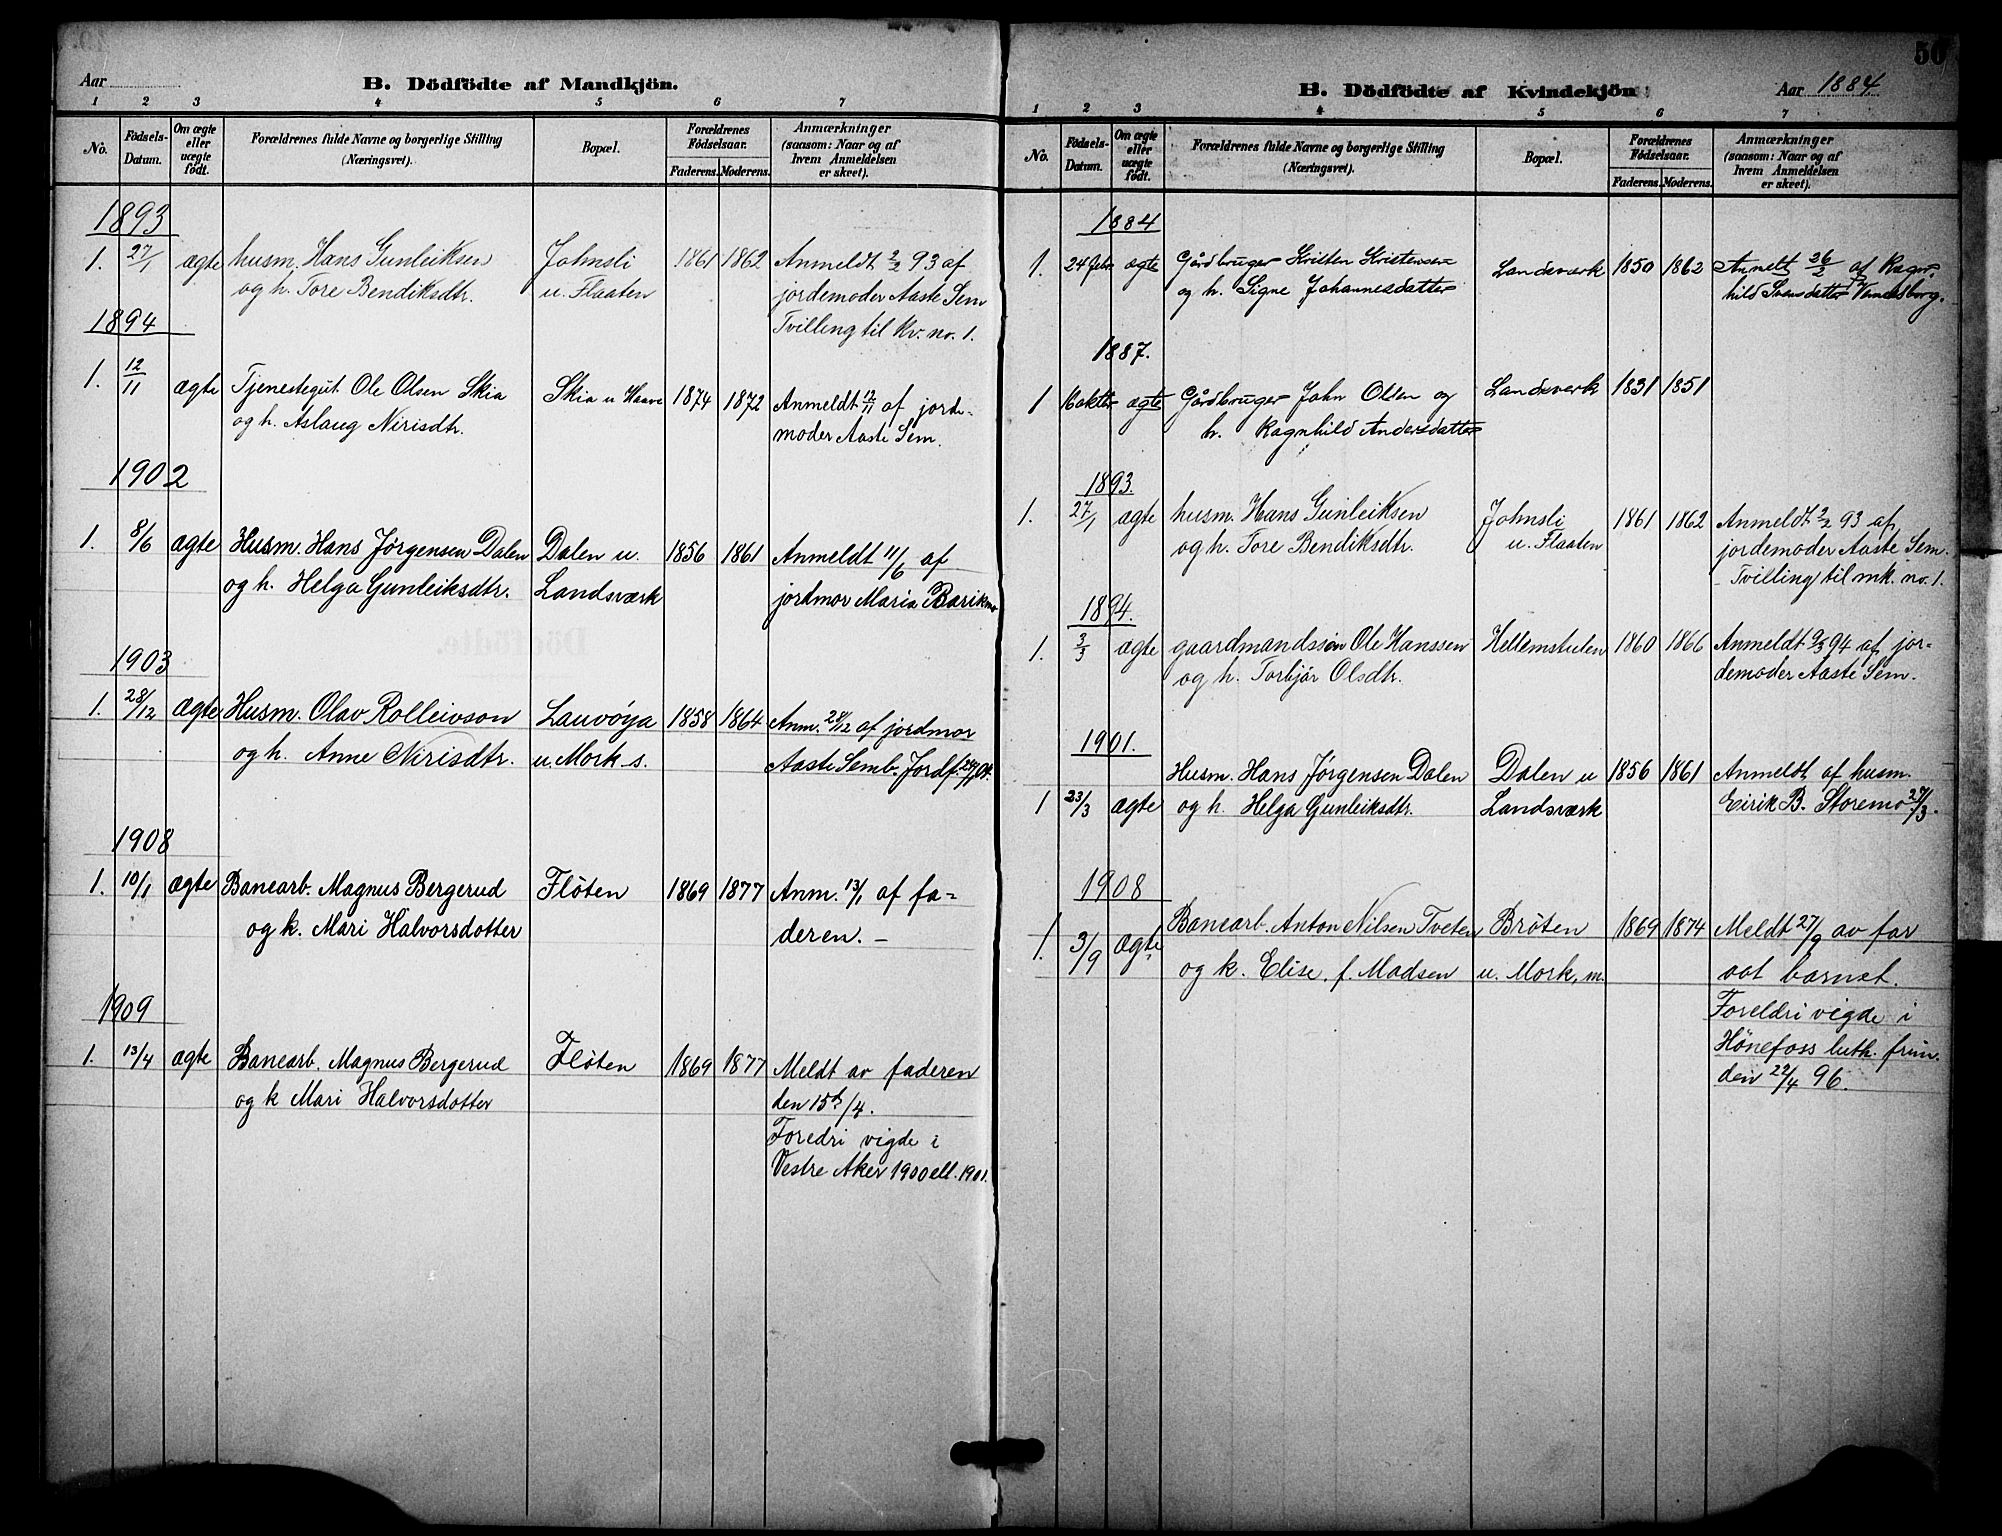 Aar
B. Dödfödte af Mandkjön.
1 2 3 4 5 6 7
No.
Födsels-
Datum.
Om ægte
eller
uægte
födt.
Forældrenes fulde Navne og borgerlige Stilling
(Næringsvei).
Bopæl.
Forældrenes
Födselsaar.
Faderens. Moderens.
Anmærkninger
(saasom: Naar og af
hvem Anmeldelsen
er skeet).
1893
1. 27/1 ægte husm. Hans Gunleiksen Johnsli 1861 1862 Anmeldt 2/2 93 af
og h. Tore Bendiksdtr. u. Flaaten jordemoder Aaste Sem
Tvilling til Kv. no. 1.
1894
1. 12/11 ægte Tjenestegut Ole Olsen Skia Skia u Haave 1874 1872 Anmeldt 12/11 af jorde-
og h. Aslaug Nirisdtr. moder Aaste Sem.
1902
1. 8/6 ægte Husm. Hans Jørgensen Dalen Dalen u. 1856 1861 Anmeldt 11/6 af
og h. Helga Gunleiksdtr. Landsværk jordmor Maria Barikmo
1903
1. 28/12 ægte Husm. Olav Rolleivson Lauvøya 1858 1864 Anm. 28/12 af jordmor
og h. Anne Nirisdtr. u. Mork s. Aaste Semb. Jordf.
1908
1. 10/1 ægte Banearb. Magnus Bergerud Flöten 1869 1877 Anm. 13/1 af fa-
og k. Mari Halvorsdotter deren. –
1909
1. 13/4 ægte Banearb. Magnus Bergerud Fløten 1869 1877 Meldt av faderen
og k Mari Halvorsdotter den 15de/4.
Foredri vigde i
Vestre Aker 1900 ell. 1901.
50
B. Dödfödte af Kvindekjön
Aar 1884
1 2 3 4 5 6 7
No.
Födsels-
Datum.
Om ægte
eller
uægte
födt.
Forældrenes fulde Navne og borgerlige Stilling
(Næringsvei).
Bopæl.
Forældrenes
Födselsaar.
Faderens. Moderens.
Anmærkninger
(saasom: Naar og af
hvem Anmeldelsen
er skeet).
1884
1. 24 febr ægte Gårdbruger Kristen Kristensen Landsverk 1850 1862 Anmelt 26/2 af Ragn-
og h. Signe Johannesdatter hild Svensdatter
1887.
1 16 oktbr ægte Gårdbruger John Olsen og Landsverk 1831 1851
h. Ragnhild Andersdatter
1893.
1. 27/1 ægte husm. Hans Gunleiksen Johnsli 1861 1862 Anmeldt 2/2 93 af
og h. Tore Bendiksdtr. u. Flaaten jordemoder Aaste Sem.
Tvilling til mk. no. 1.
1894.
1. 3/3 ægte gaardmandssøn Ole Hanssen Hellemstulen 1860 1866 Anmeldt 9/3 94 af jor-
og h. Torbjør Olsdtr. demoder Aaste Sem.
1901.
Husm. Hans Jørgensen Dalen Dalen u 1856 1861 Anmeldt af husm.
1 23/3 ægte og h. Helga Gunleiksdtr. Landsværk Eirik B. Storemo 27/3.
1908
Banearb. Anton Nilsen Tveten Bröten 1869 1874 Meldt 27/9 av far
1. 3/9 ægte og k. Elise f. Madsen u. Mork, m. aat barnet.
Foreldri vigde i
Hönefoss luth. frim.
den 22/4 96.